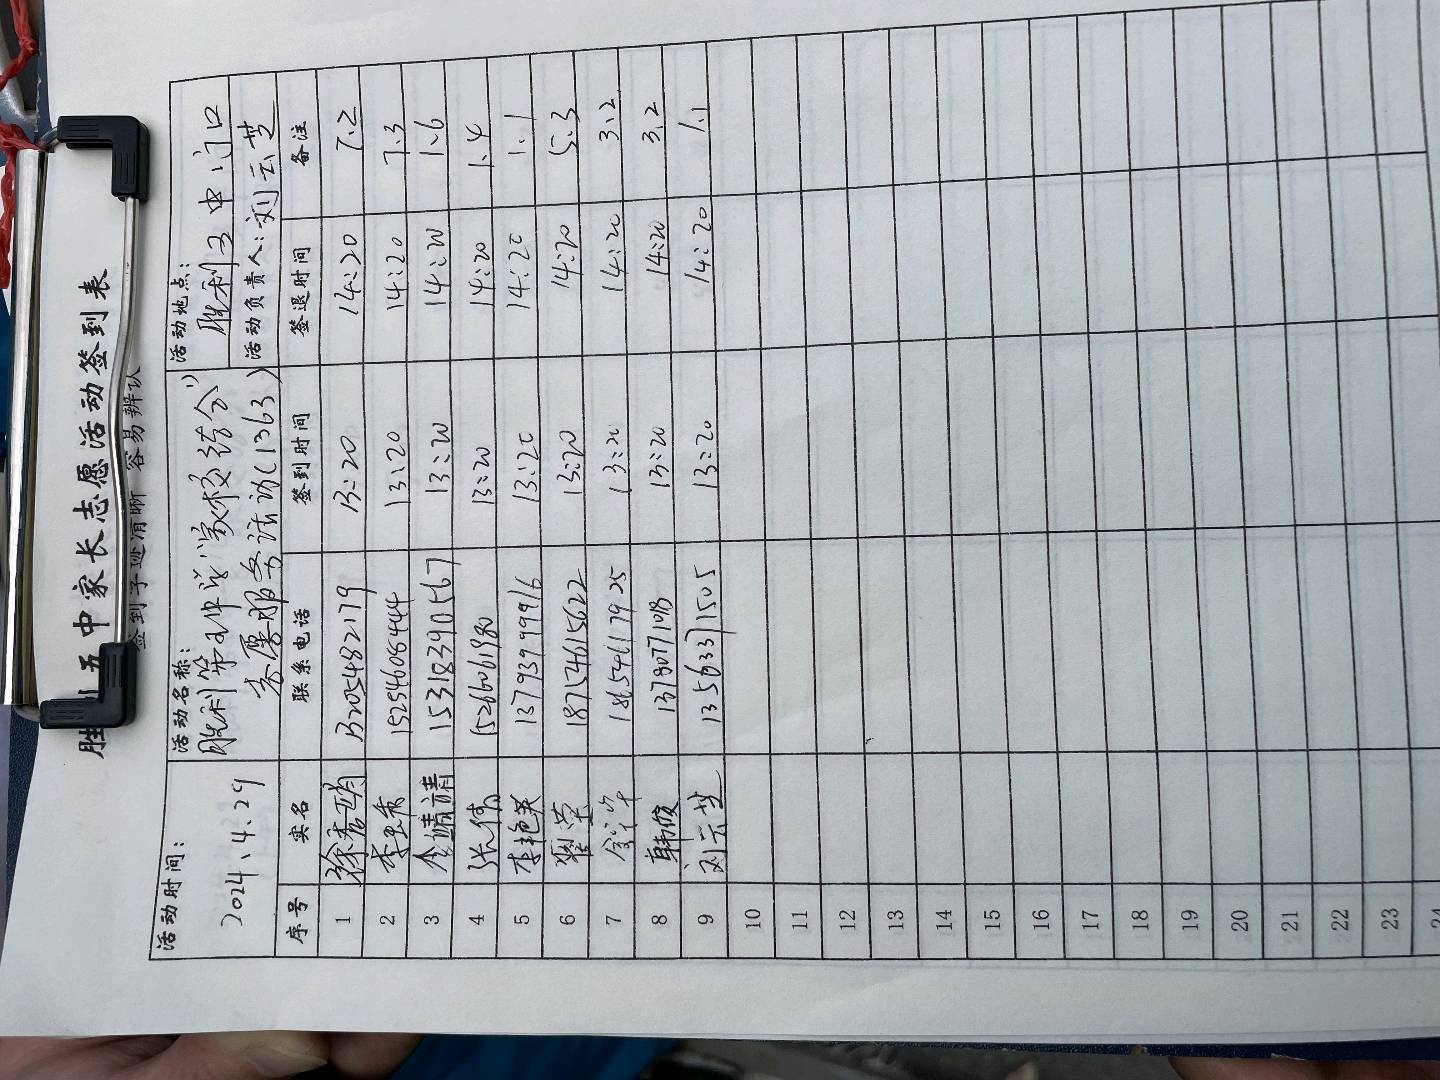 胜利五中家长志愿活动签到表
签到字迹清晰 容易辨认
活动时间:
2024、4、29
活动名称:
胜利第五中学"家校结合"
志愿服务活动(1363)
活动地点:
胜利五中门口
活动负责人:刘云芝
序号 实名 联系电话 签到时间 签退时间 备注
1 徐秀娟 13205482179 13:20 14:20 7.2
2 李玉秀 15254608444 13:20 14:20 7.3
3 李婧靖 15318390567 13:20 14:20 1.6
4 张伟 15266061980 13:20 14:20 1.4
5 李艳英 13793999916 13:20 14:20 1.1
6 翟莹 18754615622 13:20 14:20 5.3
7 18654617925 13:20 14:20 3.2
8 韩俊 13:20 14:20 3.2
9 刘云芝 13563371505 13:20 14:20 1.1
10
11
12
13
14
15
16
17
18
19
20
21
22
23
24